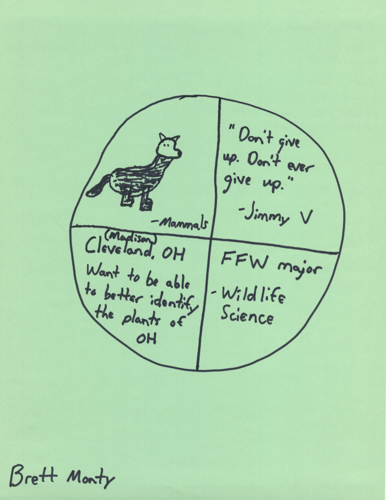 "Don't give
up. Don't ever
give up."
-Jimmy V
-Mammals
(Madison)
Cleveland, OH
Want to be able
to better identify
the plants of
OH
FFW major
-Wildlife
Science
Brett Monty